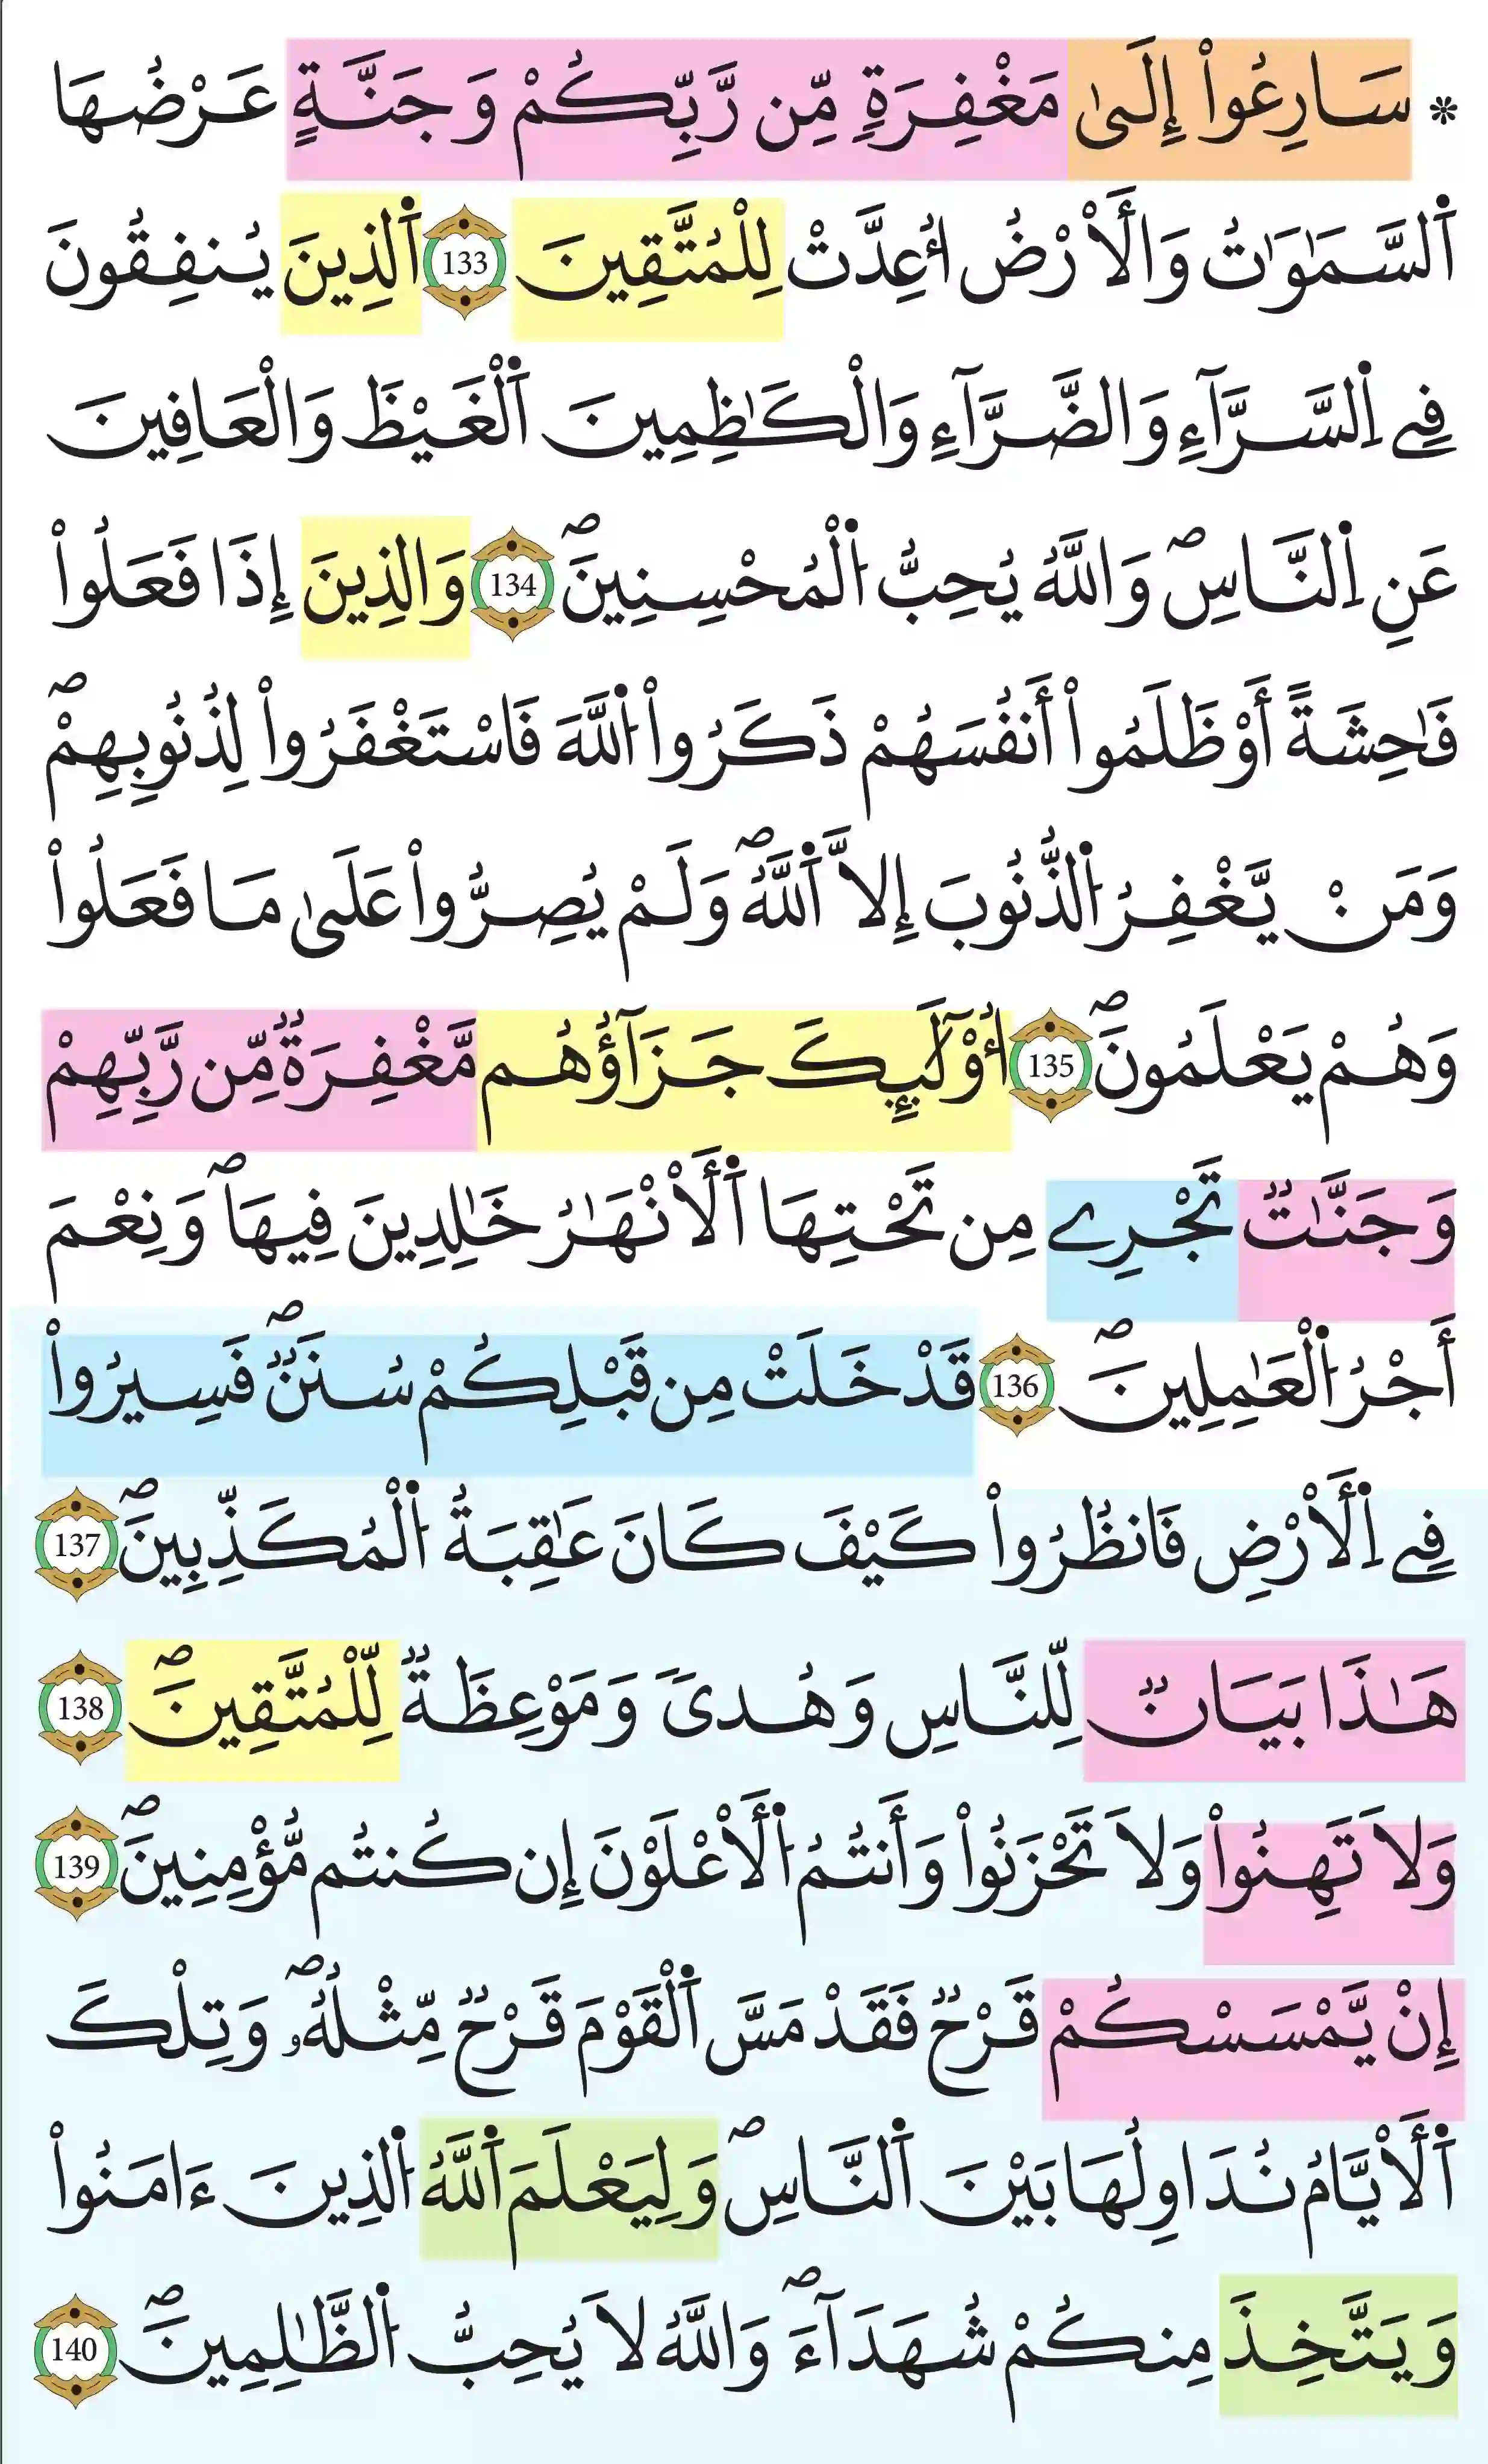 * سَارِعُواْ إِلَىٰ مَغْفِرَةٍ مِّن رَّبِّكُمْ وَجَنَّةٍ عَرْضُهَا
اَ۬لسَّمَٰوَٰتُ وَالَارْضُ أُعِدَّتْ لِلْمُتَّقِينَ 133 اَ۬لذِينَ يُنفِقُونَ
فِے اِ۬لسَّرَّآءِ وَالضَّرَّآءِ وَالْكَٰظِمِينَ اَ۬لْغَيْظَ وَالْعَافِينَ
عَنِ اِ۬لنَّاسِۖ وَاللَّهُ يُحِبُّ اُ۬لْمُحْسِنِينَۖ 134 وَالذِينَ إِذَا فَعَلُواْ
فَٰحِشَةً أَوْ ظَلَمُواْ أَنفُسَهُمْ ذَكَرُواْ اُ۬للَّهَ فَاسْتَغْفَرُواْ لِذُنُوبِهِمْۖ
وَمَنْ يَّغْفِرُ اُ۬لذُّنُوبَ إِلَّا اَ۬للَّهُۖ وَلَمْ يُصِرُّواْ عَلَىٰ مَا فَعَلُواْ
وَهُمْ يَعْلَمُونَۖ 135 أُوْلَٰٓئِكَ جَزَآؤُهُم مَّغْفِرَةٌ مِّن رَّبِّهِمْ
وَجَنَّٰتٌ تَجْرِے مِن تَحْتِهَا اَ۬لَانْهَٰرُ خَٰلِدِينَ فِيهَاۖ وَنِعْمَ
أَجْرُ اُ۬لْعَٰمِلِينَۖ 136 قَدْ خَلَتْ مِن قَبْلِكُمْ سُنَنٌۖ فَسِيرُواْ
فِے اِ۬لَارْضِ فَانظُرُواْ كَيْفَ كَانَ عَٰقِبَةُ اُ۬لْمُكَذِّبِينَۖ 137
هَٰذَا بَيَانٌ لِّلنَّاسِ وَهُدىٗ وَمَوْعِظَةٌ لِّلْمُتَّقِينَۖ 138
وَلَا تَهِنُواْ وَلَا تَحْزَنُواْ وَأَنتُمُ اُ۬لَاعْلَوْنَ إِن كُنتُم مُّؤْمِنِينَۖ 139
إِنْ يَّمْسَسْكُمْ قَرْحٌ فَقَدْ مَسَّ اَ۬لْقَوْمَ قَرْحٌ مِّثْلُهُۥۖ وَتِلْكَ
اَ۬لَايَّامُ نُدَاوِلُهَا بَيْنَ اَ۬لنَّاسِۖ وَلِيَعْلَمَ اَ۬للَّهُ اُ۬لذِينَ ءَامَنُواْ
وَيَتَّخِذَ مِنكُمْ شُهَدَآءَۖ وَاللَّهُ لَا يُحِبُّ اُ۬لظَّٰلِمِينَۖ 140